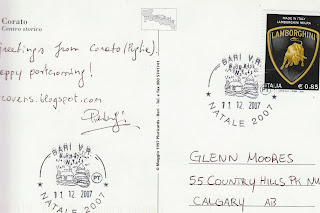 Corato
Centro storico
Greetings from Corato (Puglia).
Happy postcrossing!
covers.blogspot.com
BARI V.R.
11 12 2007
NATALE 2007
PT
© Maggio 1997 Pluricards - Bari
MADE IN ITALY
LAMBORGHINI MIURA
LAMBORGHINI
ITALIA € 0.85
BARI V.R.
11 12 2007
NATALE 2007
GLENN MOORES
55 COUNTRY HILLS PK NW
CALGARY AB